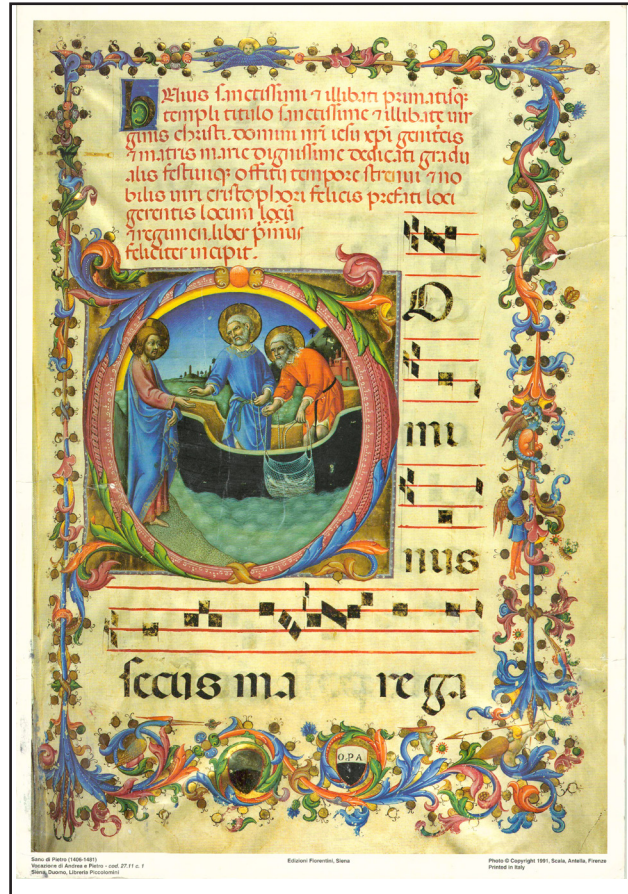 sanctissimi ⁊ illibati primatisq;
templi titulo sanctissime ⁊ illibate vir
ginis christi. domini nri iesu xpi genitcis
⁊ matris marie dignissime dedicati gradu
alis festiuiq; offitij tempore strenui ⁊ no
bilis uiri cristophori felicis prefati loci
gerentis locum
⁊ regimen. liber pimus
feliciter incipit.
D
mi
nus
secus ma re ga
O.P.A.
Sano di Pietro (1406-1481)
Vocazione di Andrea e Pietro - cod. 27.11 c. 1
Siena, Duomo, Libreria Piccolomini
Edizioni Fiorentini, Siena
Photo © Copyright 1991, Scala, Antella, Firenze
Printed in Italy